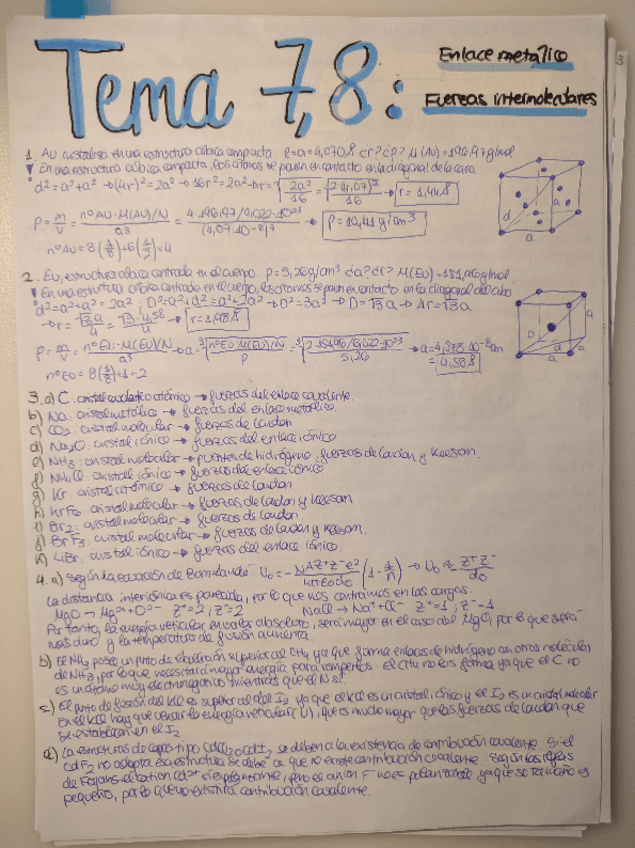 Tema 7,8:
Enlace metálico
Fuerzas intermoleculares
3
1. Au cristaliza en una estructura cúbica compacta l=a=4,070Å ¿r? ¿ρ? M(Au)=196,97g/mol
! En una estructura cúbica compacta, los átomos se ponen en contacto en la diagonal de la cara
d²=a²+a² → (4r)²=2a² → 16r²=2a² → r=√(2a²/16) = √(2·(4,07)²/16) → r=1,44Å
ρ = m/V = nºAu·M(Au)/N / a³ = 4·196,97/6,022·10²³ / (4,07·10⁻⁸)³ → ρ=19,41 g/cm³
nºAu=8(1/8)+6(1/2)=4
d
a
a
2. Eu, estructura cúbica centrada en el cuerpo. ρ=5,26g/cm³ ¿a? ¿r? M(Eu)=151,96g/mol
! En una estructura cúbica centrada en el cuerpo, los átomos se ponen en contacto en la diagonal del cubo
d²=a²+a²=2a²; D²=a²+d²=a²+2a² → D²=3a² → D=√3a → 4r=√3a
→ r=√3a/4 = √3·4,58/4 → r=1,98Å
ρ = m/V = nºEu·M(Eu)/N / a³ → a=∛(nºEu·M(Eu)/N / ρ) = ∛(2·151,96/6,022·10²³ / 5,26) → a=4,578·10⁻⁸cm
= 4,58Å
nºEu=8(1/8)+1=2
D
a
a
a
3. a) C: cristal atómico → fuerzas del enlace covalente.
b) Na: cristal metálico → fuerzas del enlace metálico.
c) CO₂: cristal molecular → fuerzas de London
d) Na₂O: cristal iónico → fuerzas del enlace iónico
e) NH₃: cristal molecular → puentes de hidrógeno, fuerzas de London y Keesom.
f) NH₄Cl: cristal iónico → fuerzas del enlace iónico
g) Kr: cristal atómico → fuerzas de London
h) cristal molecular → fuerzas de London y Keesom
i) Br₂: cristal molecular → fuerzas de London.
j) BrF₃: cristal molecular → fuerzas de London y Keesom.
k) LiBr: cristal iónico → fuerzas del enlace iónico.
4. a) Según la ecuación de Born-Landé: U₀=-NAZ⁺Z⁻e²/4πε₀d₀ (1-1/n) → U₀ ≈ Z⁺Z⁻/d₀
La distancia interiónica es parecida, por lo que nos centramos en las cargas.
MgO → Mg²⁺+O²⁻ Z⁺=2; Z⁻=2 NaCl → Na⁺+Cl⁻ Z⁺=1; Z⁻=1
Por tanto, la energía reticular, en valor absoluto, será mayor en el caso del MgO, por lo que será
más duro y la temperatura de fusión aumenta.
b) El NH₃ posee un punto de ebullición superior al CH₄ ya que forma enlaces de hidrógeno con otras moléculas
de NH₃, por lo que necesitará mayor energía para romperlos. El CH₄ no los forma ya que el C no
es un átomo muy electronegativo mientras que el N sí.
c) El punto de fusión del KCl es superior al del I₂ ya que el KCl es un cristal iónico y el I₂ es un cristal molecular
En el KCl hay que vencer la energía reticular (U), que es mucho mayor que las fuerzas de London que
se establecen en el I₂
d) Las estructuras de capas tipo CdCl₂ o CdI₂ se deben a la existencia de contribución covalente. Si el
CdF₂ no adopta esa estructura se debe a que no existe contribución covalente. Según las reglas
de Fajans el catión Cd²⁺ sí es polarizante, pero es anión F⁻ no es polarizable ya que su tamaño es
pequeño, por lo que no existirá contribución covalente.